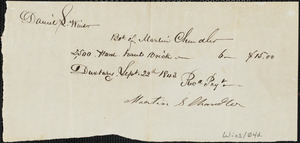 Daniel L. Winsor
Bot of Martin Chandler
2500 Hard Brick — 6 — $15.00
Duxbury Sept. 22d 1843
Recd Payt
Martin S Chandler